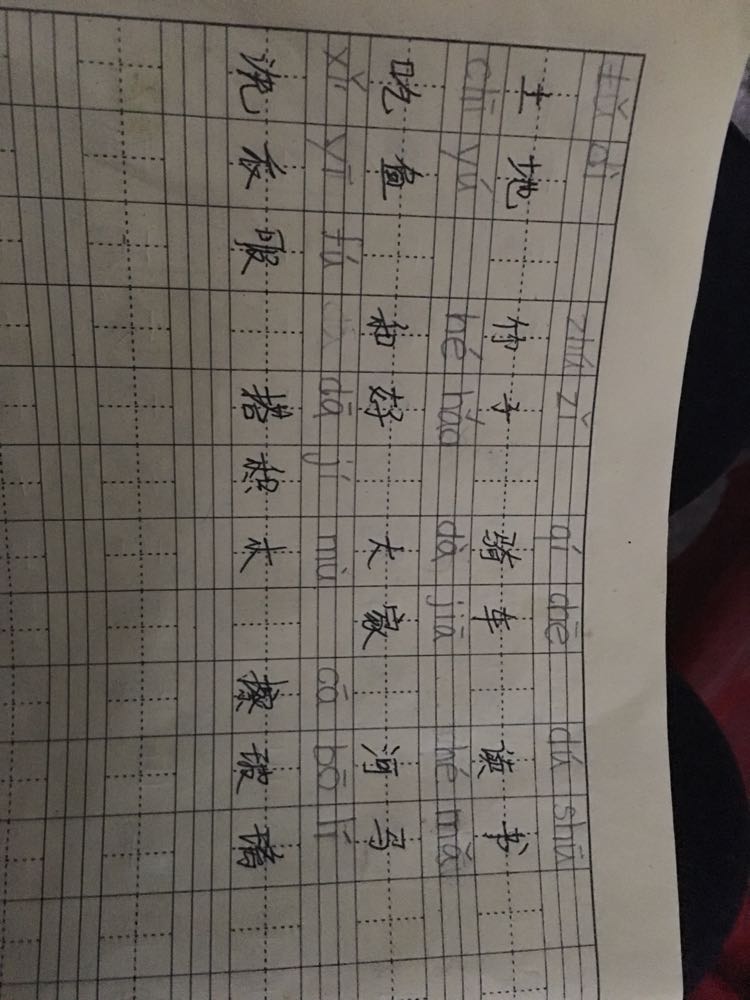 tǔ dì zhú zǐ qí chē dú shū
土地 竹子 骑车 读书
chī yú hé hǎo dà jiā hé mǎ
吃鱼 和好 大家 河马
xǐ yī fú dā jí mù cā bō lí
洗衣服 搭积木 擦玻璃